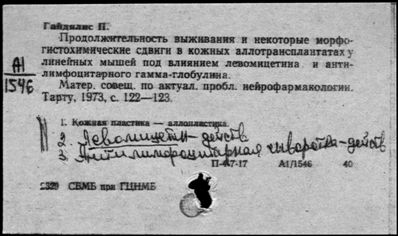 Гайдялис П.
Продолжительность выживания и некоторые морфо-
гистохимические сдвиги в кожных аллотрансплантатах у
линейных мышей под влиянием левомицетина и анти-
лимфоцитарного гамма-глобулина.
Матер. совещ. по актуал. пробл. нейрофармакологии.
Тарту, 1973, с. 122—123.
А1
1546
1. Кожная пластика — аллопластика.
2. Левомицетин-действ
3. Антилимфоцитарная сыворотка-действ
П-47-17 А1/1546 40
2329 СБМБ при ГЦНМБ